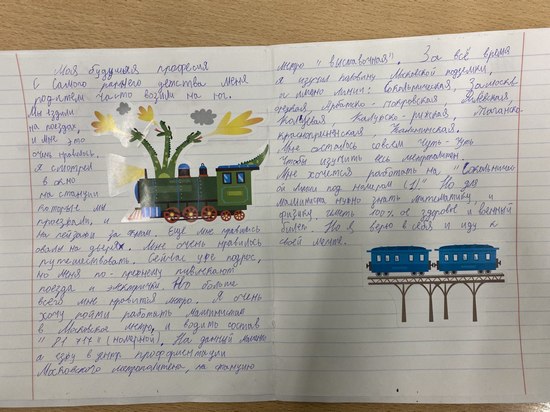 Моя будущая професия
С самого раннего детства меня
родители часто возили на юг.
Мы ездили
на поездах,
и мне это
очень нравилось.
Я смотрел
в окно
на станции
которые мы
проезжали, и
на пейзажи за окном. Ещё мне нравилось
путешествовать. Сейчас уже подрос,
но меня по-прежнему привлекают
поезда и электрички. Но больше
всего мне нравится метро. Я очень
хочу пойти работать машинистом
в Московское метро, и водить состав
"81 717" (номерной). На данный момент
я езжу в центр профориентации
Московского метрополитена, на станцию
метро "Выставочная". За всё время
я изучил половину Московской подземки,
а именно линии: Сокольническая, Замоскво-
рецкая, Арбатско-Покровская, Филёвская,
Кольцевая Калужско-рижская, Таганско-
краснопресненская, Калининская.
Мне осталось совсем чуть-чуть
чтобы изучить весь метрополитен.
Мне хочется работать на "Сокольничес-
ой линии под номером (1)." Но для
машиниста нужно знать математику и
физику, иметь 100% ое здоровье и военный
билет. Но я верю в себя и иду к
своей мечте.